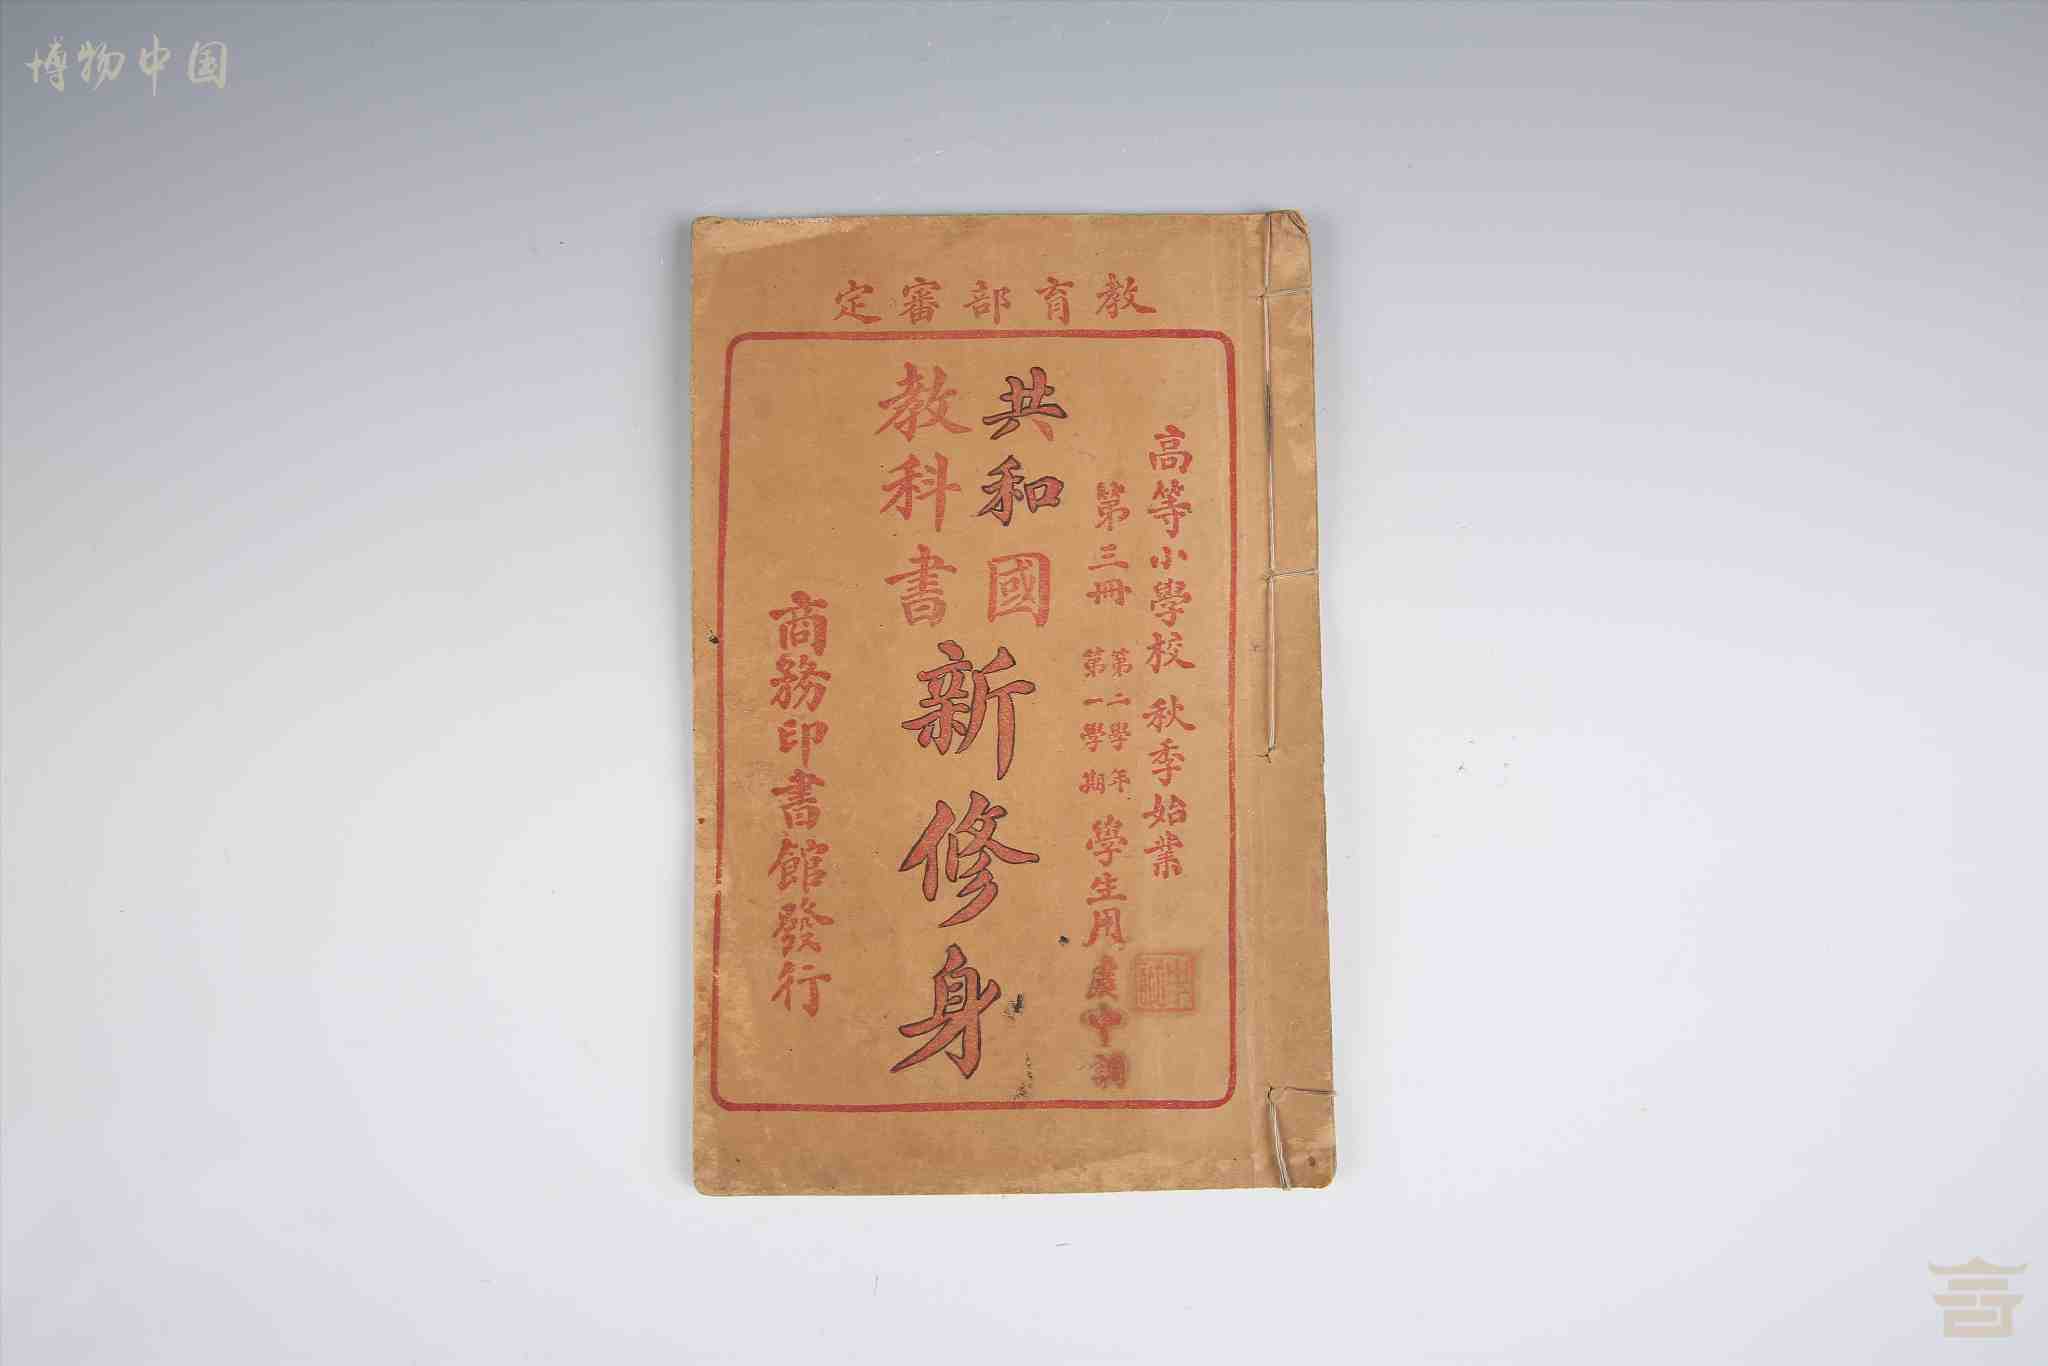 博物中国
教育部審定
高等小學校 秋季始業
第三冊 第二學年 第一學期 學生用
共和國
教科書
新修身
商務印書館發行